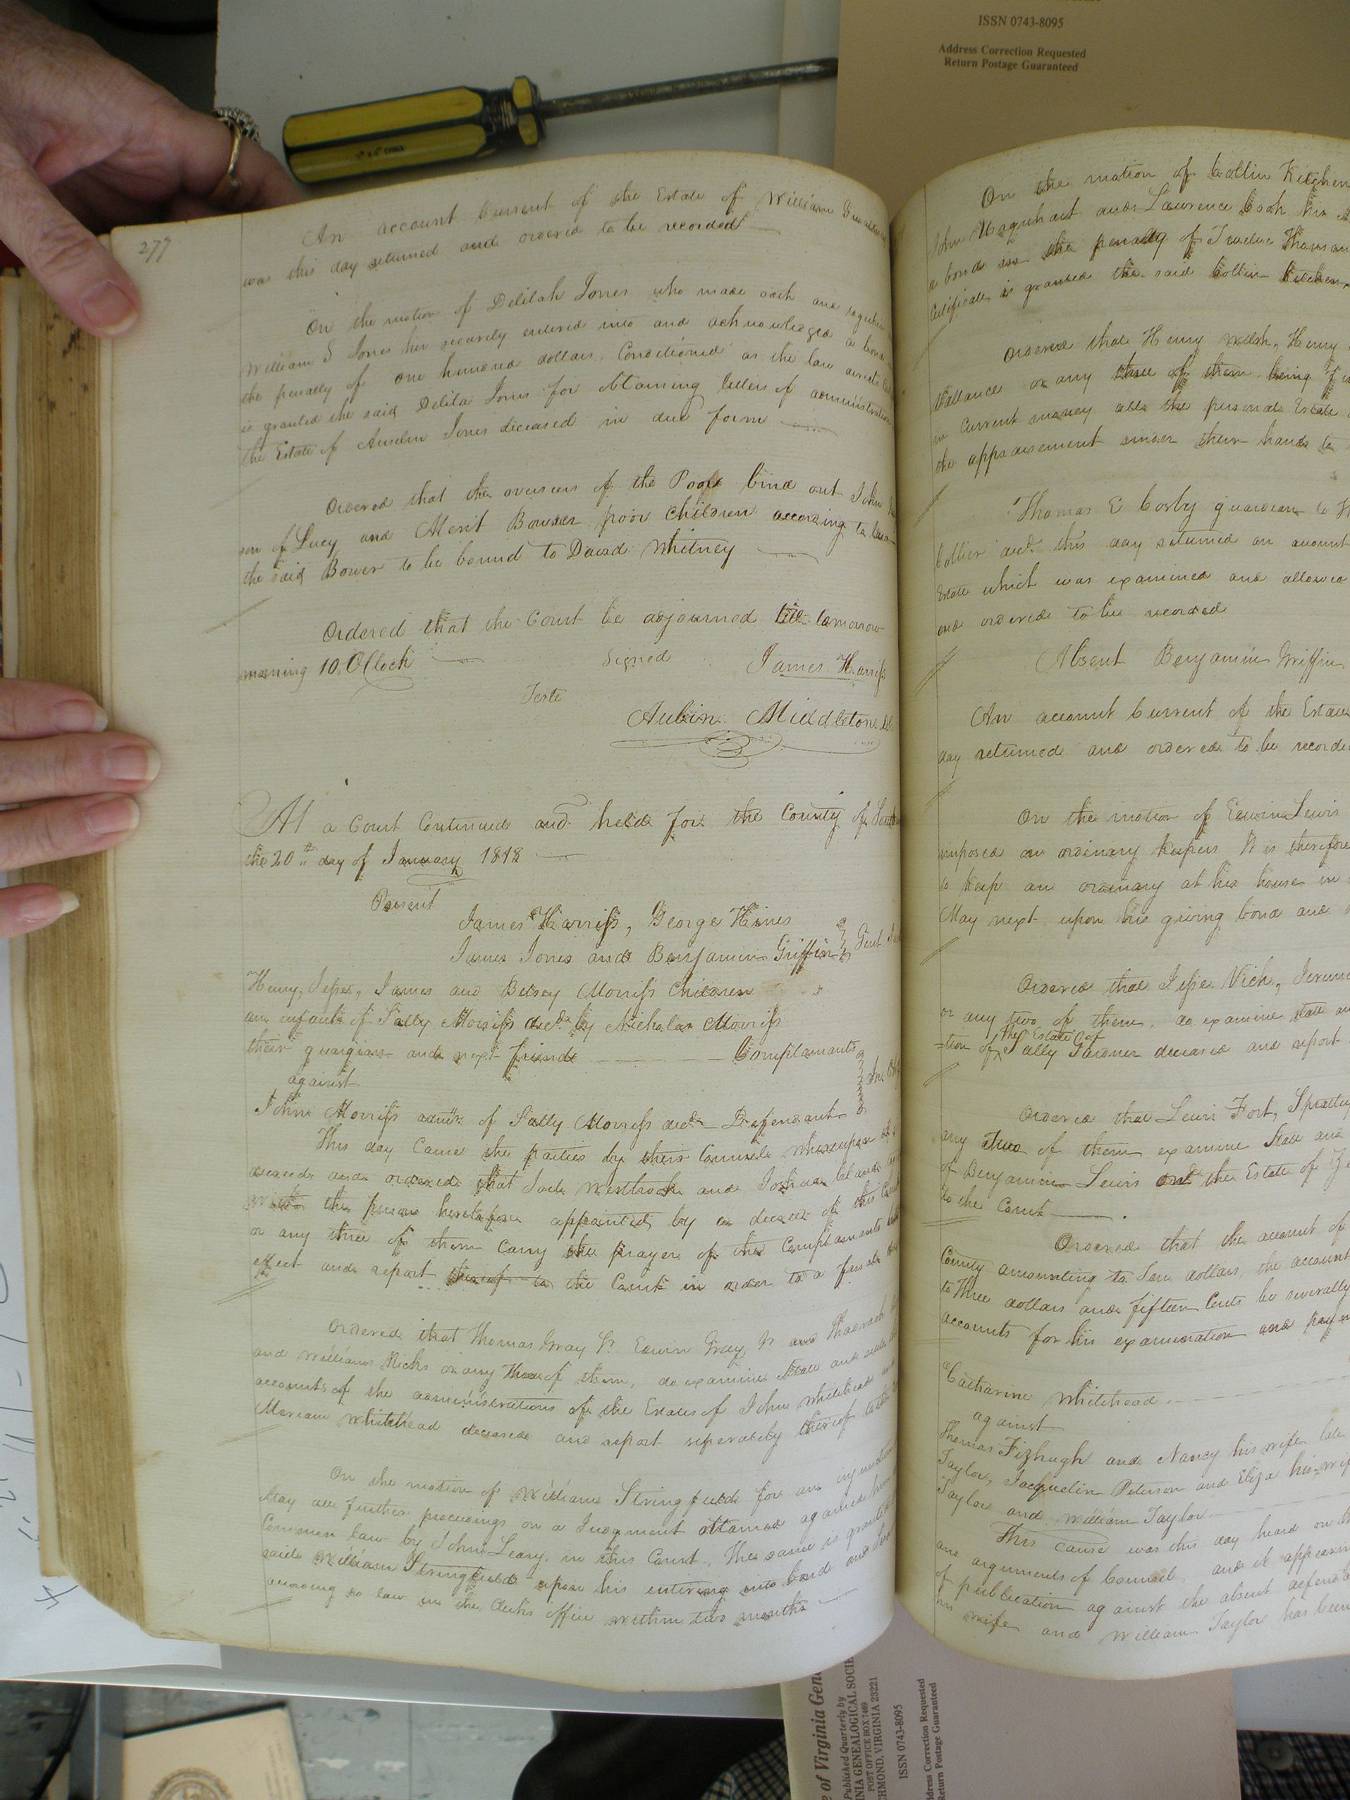 ISSN 0743-8095
Address Correction Requested
Return Postage Guaranteed
277
An account Current of the Estate of William
was this day returned and ordered to be recorded
On the motion of Delilah Jones who made oath and together
William S Jones her security entered into and acknowledged a bond
the penalty of one hundred dollars, Conditioned as the law directs
is granted the said Delila Jones for obtaining letters of administration
the Estate of Anselm Jones deceased in due form
Ordered that the overseers of the Poor bind out John
son of Lucy and Merit Bowser poor children according to law
the said Bowser to be bound to David Whitney
Ordered that the Court be adjourned till tomorrow
morning 10. OClock
Signed James Harriss
Teste
Aubin Middleton
At a Court Continued and held for the County of
the 20th day of January 1818
Present
James Harriss, George Hines
James Jones and Benjamin Griffin Gent
Henry, Jesse, James and Betsey Morriss Children
and infants of Sally Morriss decd. by Nicholas Morriss
their guardian and next friend Complainants
against
John Morriss admr. of Sally Morriss decd. Defendant
This day Came the parties by their Counsel Whereupon
decreed and ordered that Westbrook and Joshua
the persons heretofore appointed by a decree of this Court
or any three of them carry the prayer of the Complainants
effect and report thereof to the Court in order to a final
Ordered that Thomas Gray Sr. Edwin Gray, Jr and
and William Ricks or any three of them, do examine State and
accounts of the administrations of the Estates of John Whitehead
Meriam Whitehead deceased and report seperately thereof to
On the motion of William Stringfield for an injunction
stay all further proceedings on a Judgment attained against him
Common law by John Leary in this Court, The same is granted
said William Stringfield upon his entering into bond and
according to law in the Clerks office within two months
On the motion of Collin Kitchen
John Urquhart and Lawrence Cook his
a bond in the penalty of Twelve Thousand
Certificate is granted the said Collin Kitchen
Ordered that Henry Welsh, Henry
Vallance or any three of them being
in Current money all the personal Estate
the appraisement under their hands to
Thomas E Corby guardian to
Collier decd. this day returned an account
Estate which was examined and allowed
and ordered to be recorded
Absent Benjamin Griffin
An account Current of the Estate
day returned and ordered to be recorded
On the motion of Edwin Lewis
imposed on ordinary keepers It is therefore
to keep an ordinary at his house in
May next upon his giving bond and
Ordered that Jesse Vick,
or any two of them, do examine State and
-tion of the Estate of Sally Gardner deceased and report
Ordered that Lewis Fort, Spratley
any two of them examine State and
of Benjamin Lewis on the Estate of
to the Court
Ordered that the account of
County amounting to Ten dollars, the account
to Three dollars and fifteen Cents be severally
accounts for his examination and payment
Catharine Whitehead
against
Thomas Fizhugh and Nancy his wife late
Taylor, Jacquelin Peterson and Eliza his wife
Taylor and William Taylor
This cause was this day heard on the
and arguments of Counsel, and it appearing
of publication against the absent defendants
his wife and William Taylor has been
e of Virginia Gen
Published Quarterly by
INIA GENEALOGICAL SOCIE
POST OFFICE BOX 7469
CHMOND, VIRGINIA 23221
ISSN 0743-8095
Address Correction Requested
Return Postage Guaranteed